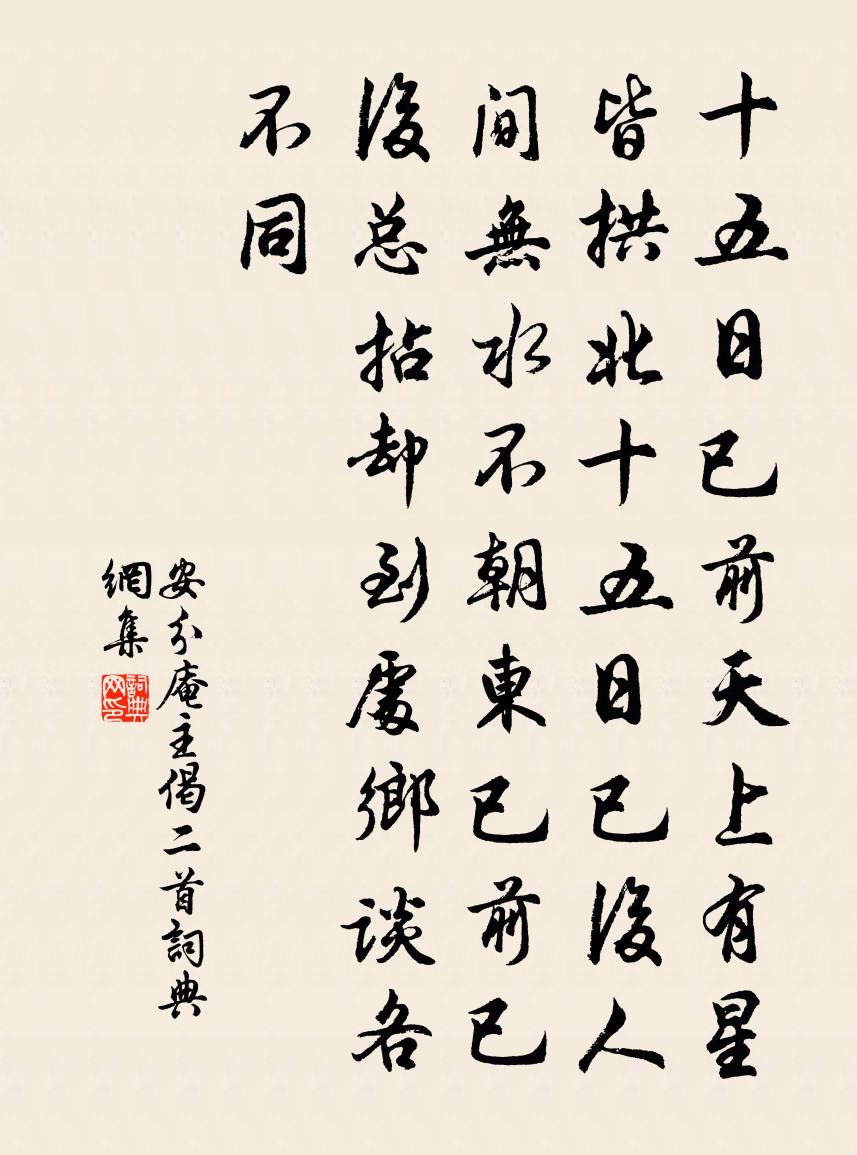 十五日已前天上有星
皆拱北十五日已後人
间無水不朝東已前已
後总拈却到處鄉谈各
不同
安分庵主偈二首詞典
網集
詞典
网印